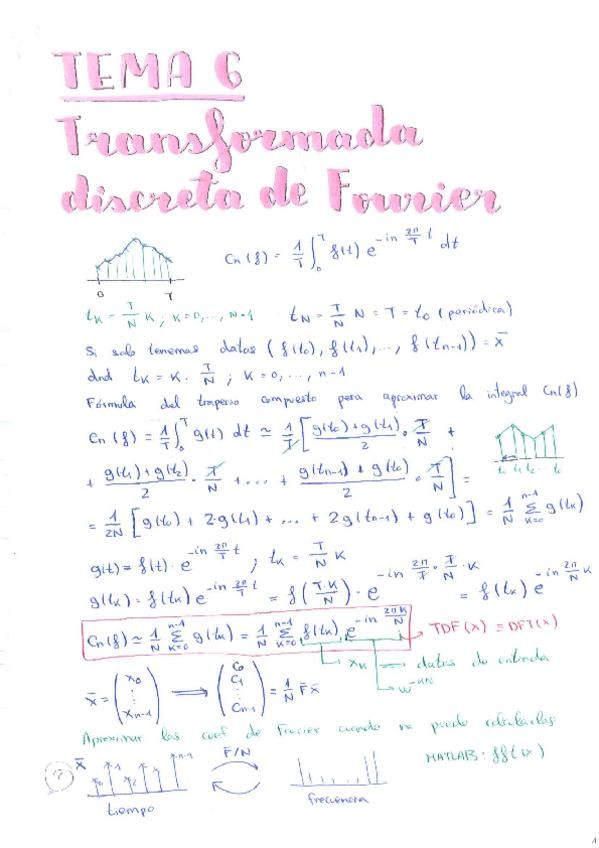 TEMA 6
Transformada
discreta de Fourier
Cn(f) = 1/T ∫₀ᵀ f(t) e^(-in 2π/T t) dt
0 T
t_K = T/N K; K=0,..., N-1 t_N = T/N N = T = t_0 (periódica)
Si solo tenemos datos (f(t_0), f(t_1),..., f(t_{n-1})) = x̄
dnd t_K = K · T/N ; K=0,..., n-1
Fórmula del trapecio compuesto para aproximar la integral Cn(f)
Cn(f) = 1/T ∫₀ᵀ g(t) dt ≃ 1/T [ (g(t_0)+g(t_1))/2 · T/N +
+ (g(t_1)+g(t_2))/2 · T/N + ... + (g(t_{n-1})+g(t_0))/2 · T/N ] =
t_0 t_1 t_2 ... t_0
= 1/2N [g(t_0) + 2·g(t_1) + ... + 2g(t_{n-1}) + g(t_0)] = 1/N Σ_{K=0}^{n-1} g(t_K)
g(t) = f(t) · e^(-in 2π/T t) ; t_K = T/N K
g(t_K) = f(t_K) e^(-in 2π/T t) = f(T·K/N) · e^(-in 2π/T · T/N · K) = f(t_K) e^(-in 2π/N K)
Cn(f) ≃ 1/N Σ_{K=0}^{n-1} g(t_K) = 1/N Σ_{K=0}^{n-1} f(t_K) e^(-in 2πK/N) → TDF(x) ≡ DFT(x)
x_K → datos de entrada
w^(-KN)
x̄ = (x_0 x_1 ⋮ x_{n-1}) ⟹ (C_0 C_1 ⋮ C_{n-1}) = 1/N F̄ x̄
Aproximar los coef de Fourier cuando no puedo calcularlos
MATLAB: fft(x)
x̄ F̄/N
tiempo frecuencia
1